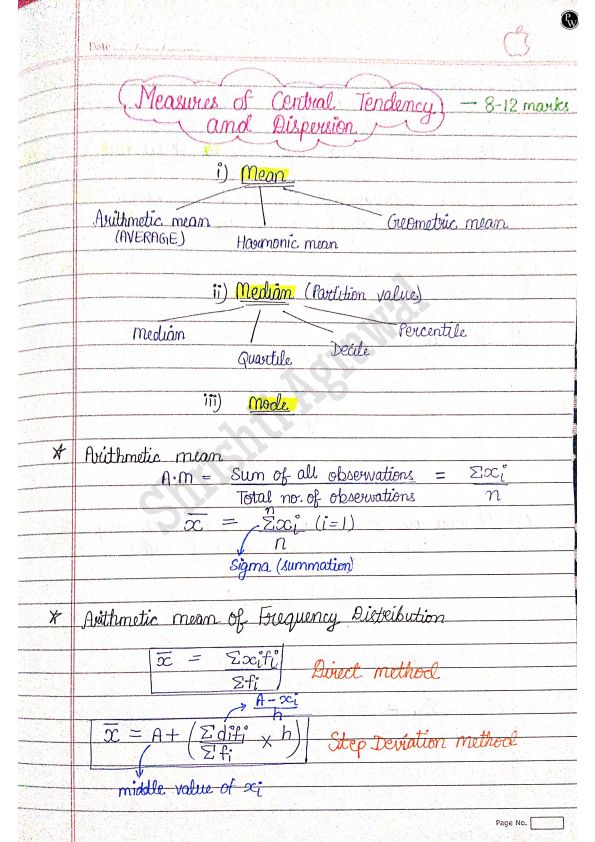 PW
Date
Measures of Central Tendency — 8-12 marks
and Dispersion
i) Mean
Arithmetic mean
(AVERAGE)
Harmonic mean
Geometric mean
ii) Median (Partition value)
Median
Quartile
Decile
Percentile
iii) Mode
* Arithmetic mean
A.M = Sum of all observations = Σxi
Total no. of observations n
x̄ = nΣxi (i=1)
n
Sigma (summation)
* Arithmetic mean of Frequency Distribution
x̄ = Σxifi
Σfi
Direct method
A-xi
h
x̄ = A + (Σdifi × h)
Σfi
Step Deviation method
middle value of xi
Page No.
Shrishti Agrawal